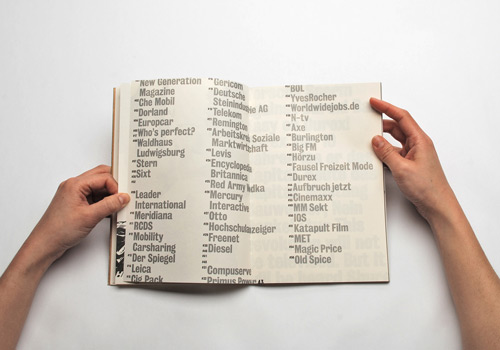 New Generation
Magazine
Che Mobil
Dorland
Europcar
Who's perfect?
Waldhaus
Ludwigsburg
Stern
Sixt
Leader
International
Meridiana
RGDS
Mobility
Carsharing
Der Spiegel
Leica
Gig Pack
Gericom
Deutsche
Steinindustrie AG
Telekom
Remington
Arbeitskreis Soziale
Marktwirtschaft
Levis
Encyclopedia
Britannica
Red Army
Mercury
Interactive
Otto
Hochschulanzeiger
Freenet
Diesel
Compuserve
Primus Power
BOL
YvesRocher
Worldwidejobs.de
N-tv
Axe
Burlington
Big FM
Hörzu
Fausel Freizeit Mode
Durex
Aufbruch jetzt
Cinemaxx
MM Sekt
IGS
Katapult Film
MET
Magic Price
Old Spice